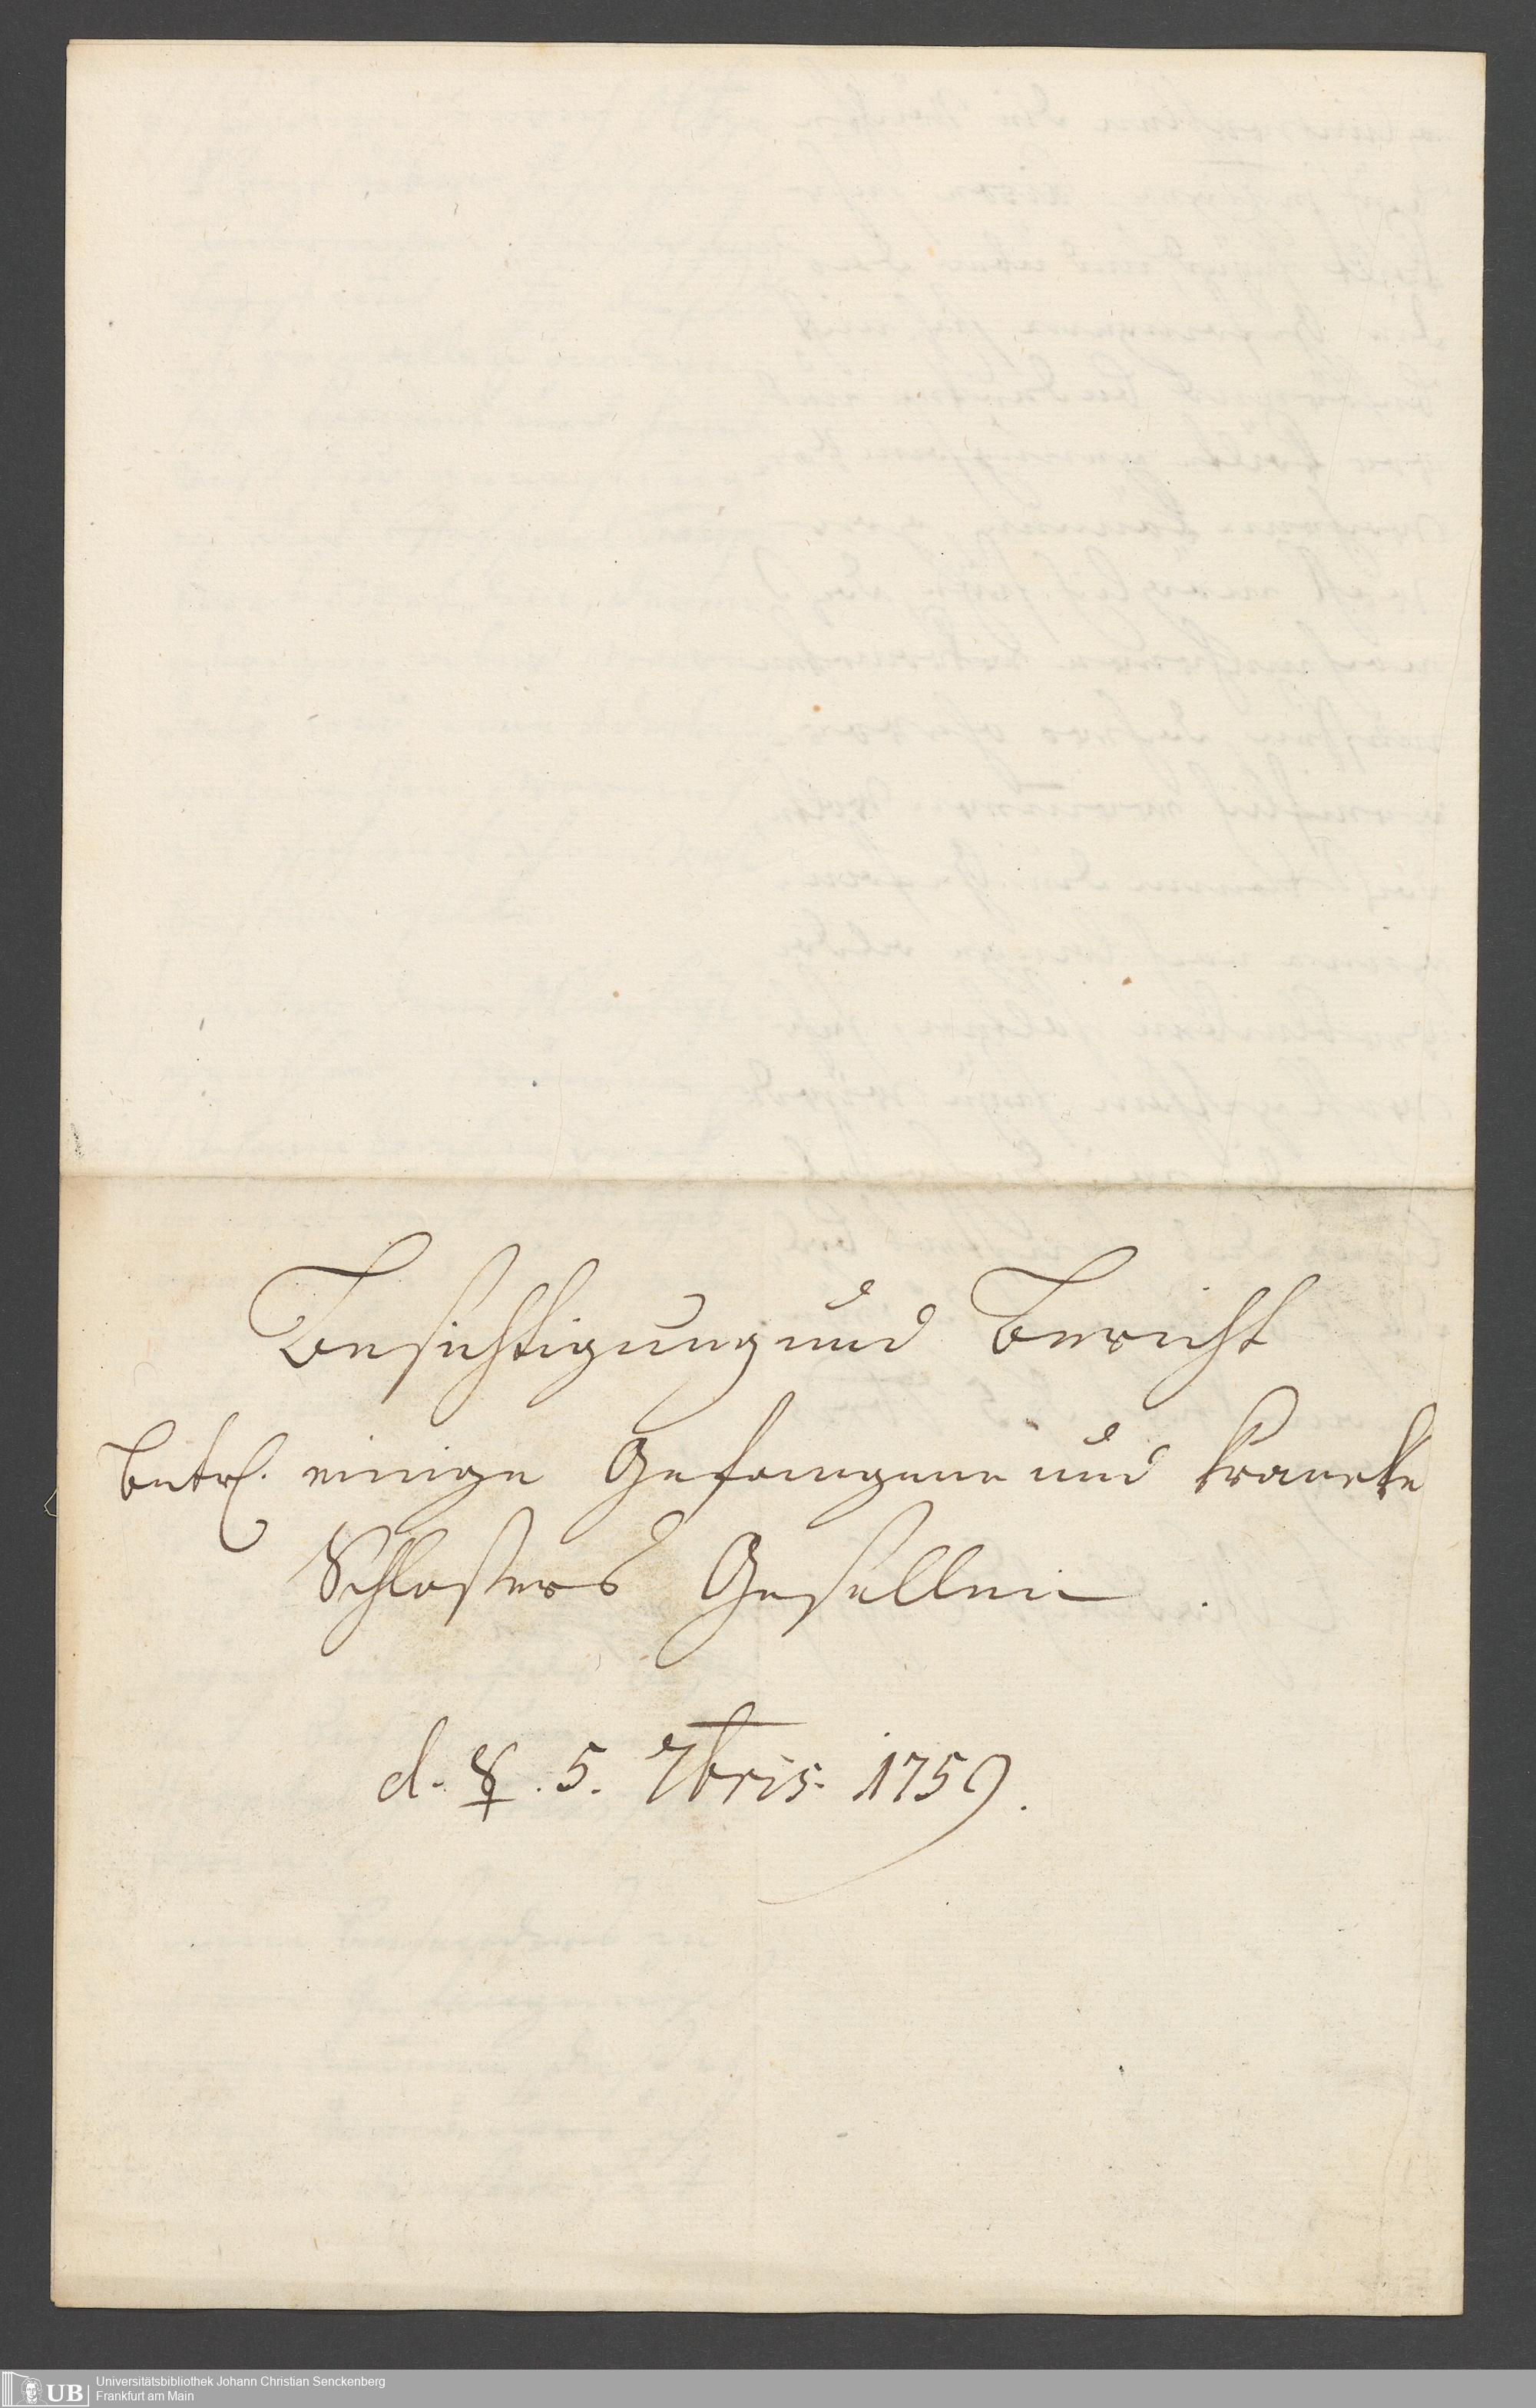 Besichtigung und Bericht
betr. einige Gefangene und krancke
Schlossers Gesellen.
d. ☿. 5. 7bris. 1759.
UB
Universitätsbibliothek Johann Christian Senckenberg
Frankfurt am Main